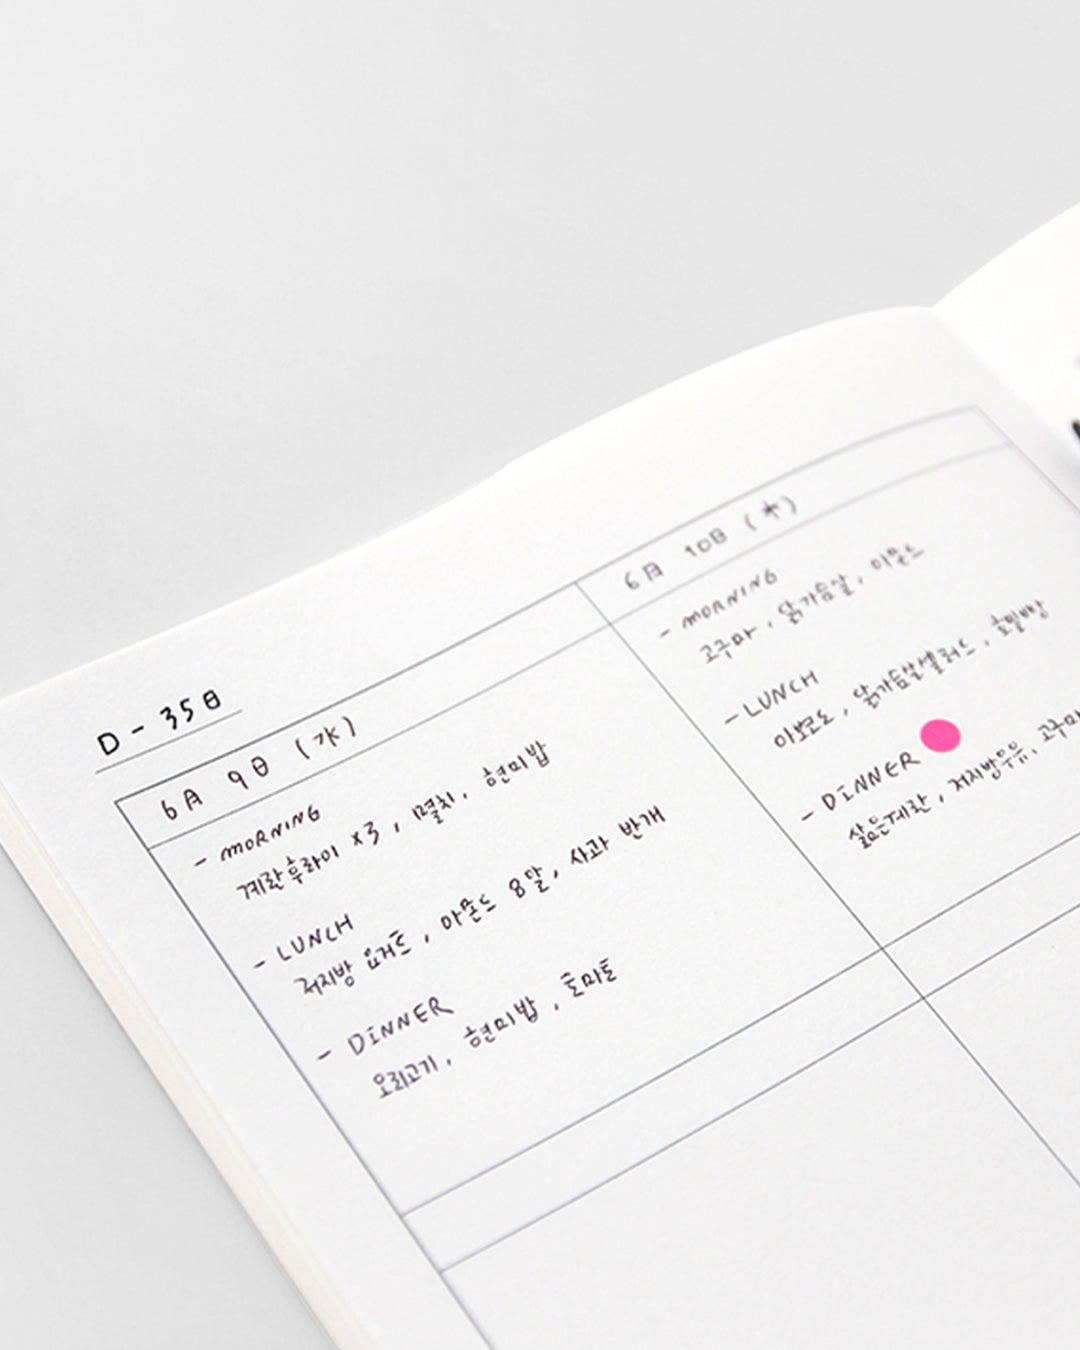 D - 35日
6月 9日 (水)
- MORNING
계란후라이 x3, 멸치, 현미밥
- LUNCH
저지방 요거트, 아몬드 8알, 사과 반개
- DINNER
오리고기, 현미밥, 토마토
6月 10日 (木)
- MORNING
고구마, 닭가슴살, 아몬드
- LUNCH
아보카도, 닭가슴살샐러드, 호밀빵
- DINNER
삶은계란, 저지방우유, 고구마